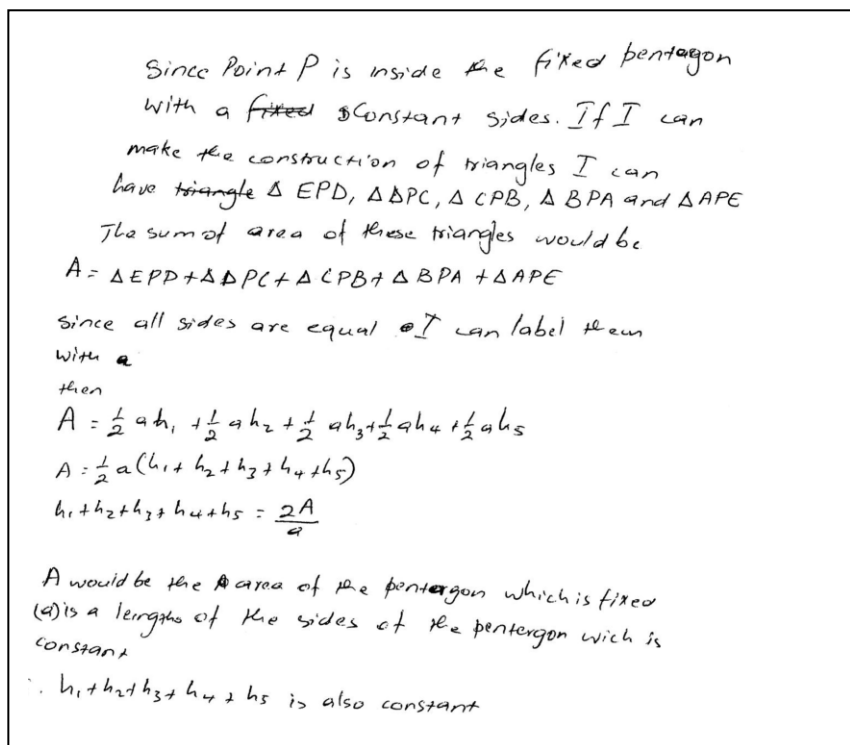 Since Point P is inside the fixed pentagon
with a fixed sConstant sides. If I can
make the construction of triangles I can
have triangle Δ EPD, Δ DPC, Δ CPB, Δ BPA and Δ APE
The sum of area of these triangles would be
A = Δ EPD + Δ DPC + Δ CPB + Δ BPA + Δ APE
Since all sides are equal I can label them
with a
then
A = 1/2 ah₁ + 1/2 ah₂ + 1/2 ah₃ + 1/2 ah₄ + 1/2 ah₅
A = 1/2 a(h₁ + h₂ + h₃ + h₄ + h₅)
h₁ + h₂ + h₃ + h₄ + h₅ = 2A/a
A would be the area of the pentergon which is fixed
(a) is a lengths of the sides of the pentergon wich is
constant
∴ h₁ + h₂ + h₃ + h₄ + h₅ is also constant